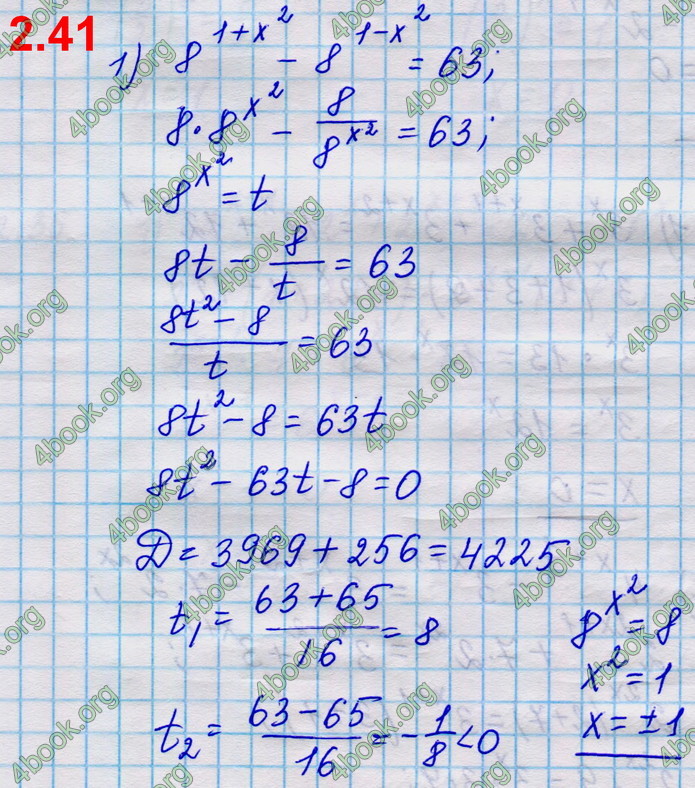 2.41
1) 8^{1+x^2} - 8^{1-x^2} = 63;
8 · 8^{x^2} - \frac{8}{8^{x^2}} = 63;
8^{x^2} = t
8t - \frac{8}{t} = 63
\frac{8t^2 - 8}{t} = 63
8t^2 - 8 = 63t
8t^2 - 63t - 8 = 0
Д = 3969 + 256 = 4225
t_1 = \frac{63 + 65}{16} = 8
t_2 = \frac{63 - 65}{16} = -\frac{1}{8} < 0
8^{x^2} = 8
x^2 = 1
x = ±1
4book.org